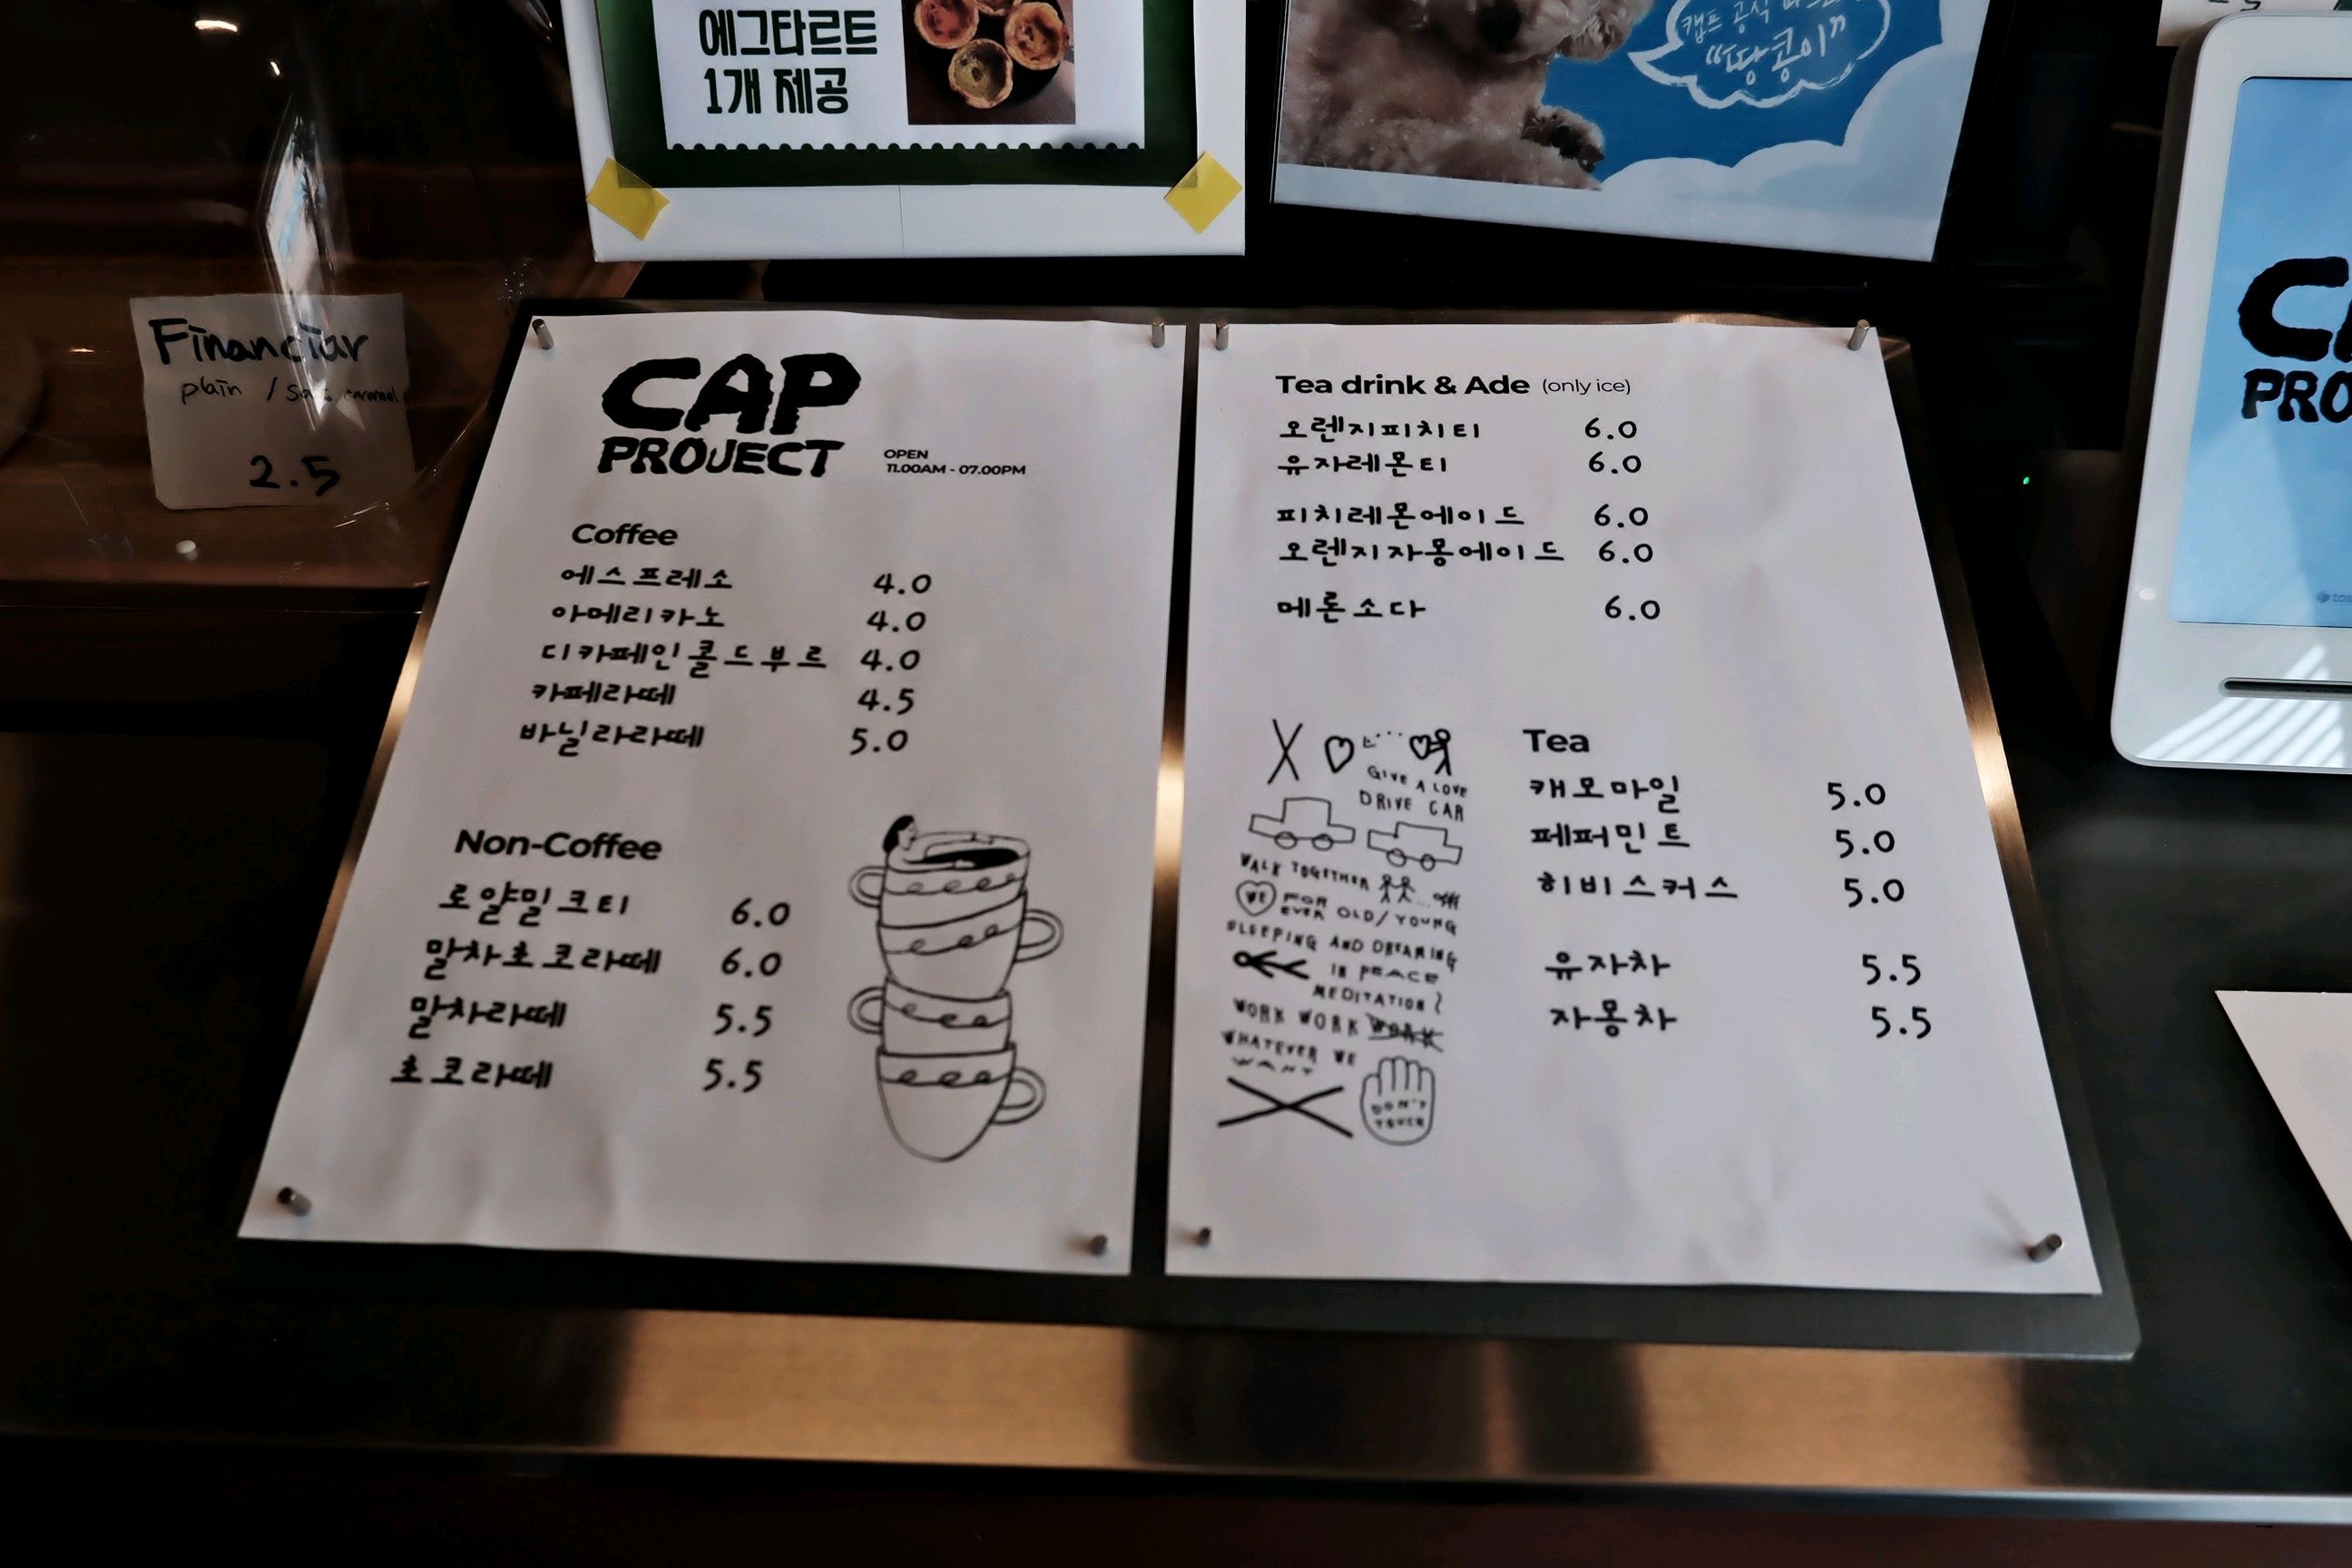 에그타르트
1개 제공
캡프 공식
"땅콩이"
Financiar
plain / Salt caramel
2.5
CAP
PROJECT
OPEN
11.00AM - 07.00PM
Coffee
에스프레소 4.0
아메리카노 4.0
디카페인콜드부르 4.0
카페라떼 4.5
바닐라라떼 5.0
Non-Coffee
로얄밀크티 6.0
말차초코라떼 6.0
말차라떼 5.5
초코라떼 5.5
Tea drink & Ade (only ice)
오렌지피치티 6.0
유자레몬티 6.0
피치레몬에이드 6.0
오렌지자몽에이드 6.0
메론소다 6.0
GIVE A LOVE
DRIVE CAR
WALK TOGETHER
WE FOR
EVER OLD/YOUNG
SLEEPING AND DREAMING
IN PEACE
MEDITATION
WORK WORK WORK
WHATEVER WE
WANT
DON'T
TOUCH
Tea
캐모마일 5.0
페퍼민트 5.0
히비스커스 5.0
유자차 5.5
자몽차 5.5